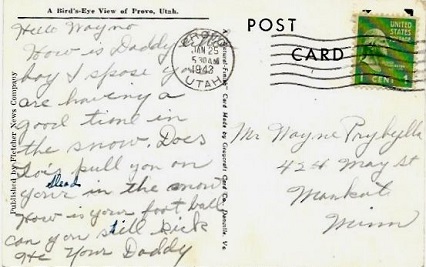 A Bird's-Eye View of Provo, Utah.
Hello Wayne
How is Daddy
boy I spose you
are having a
good time in
the snow. Does
Lois pull you on
your sled in the snow
How is your foot ball
can you still kick
He Your Daddy
Published by Fletcher News Company
A "Natural-Finish" Card Made by Graycraft Card Co., Danville, Va.
PROVO
JAN 25
5:30 AM
1943
UTAH
POST
CARD
UNITED STATES
1 CENT 1
Mr Wayne Prybylla
424 May St
Mankato
Minn